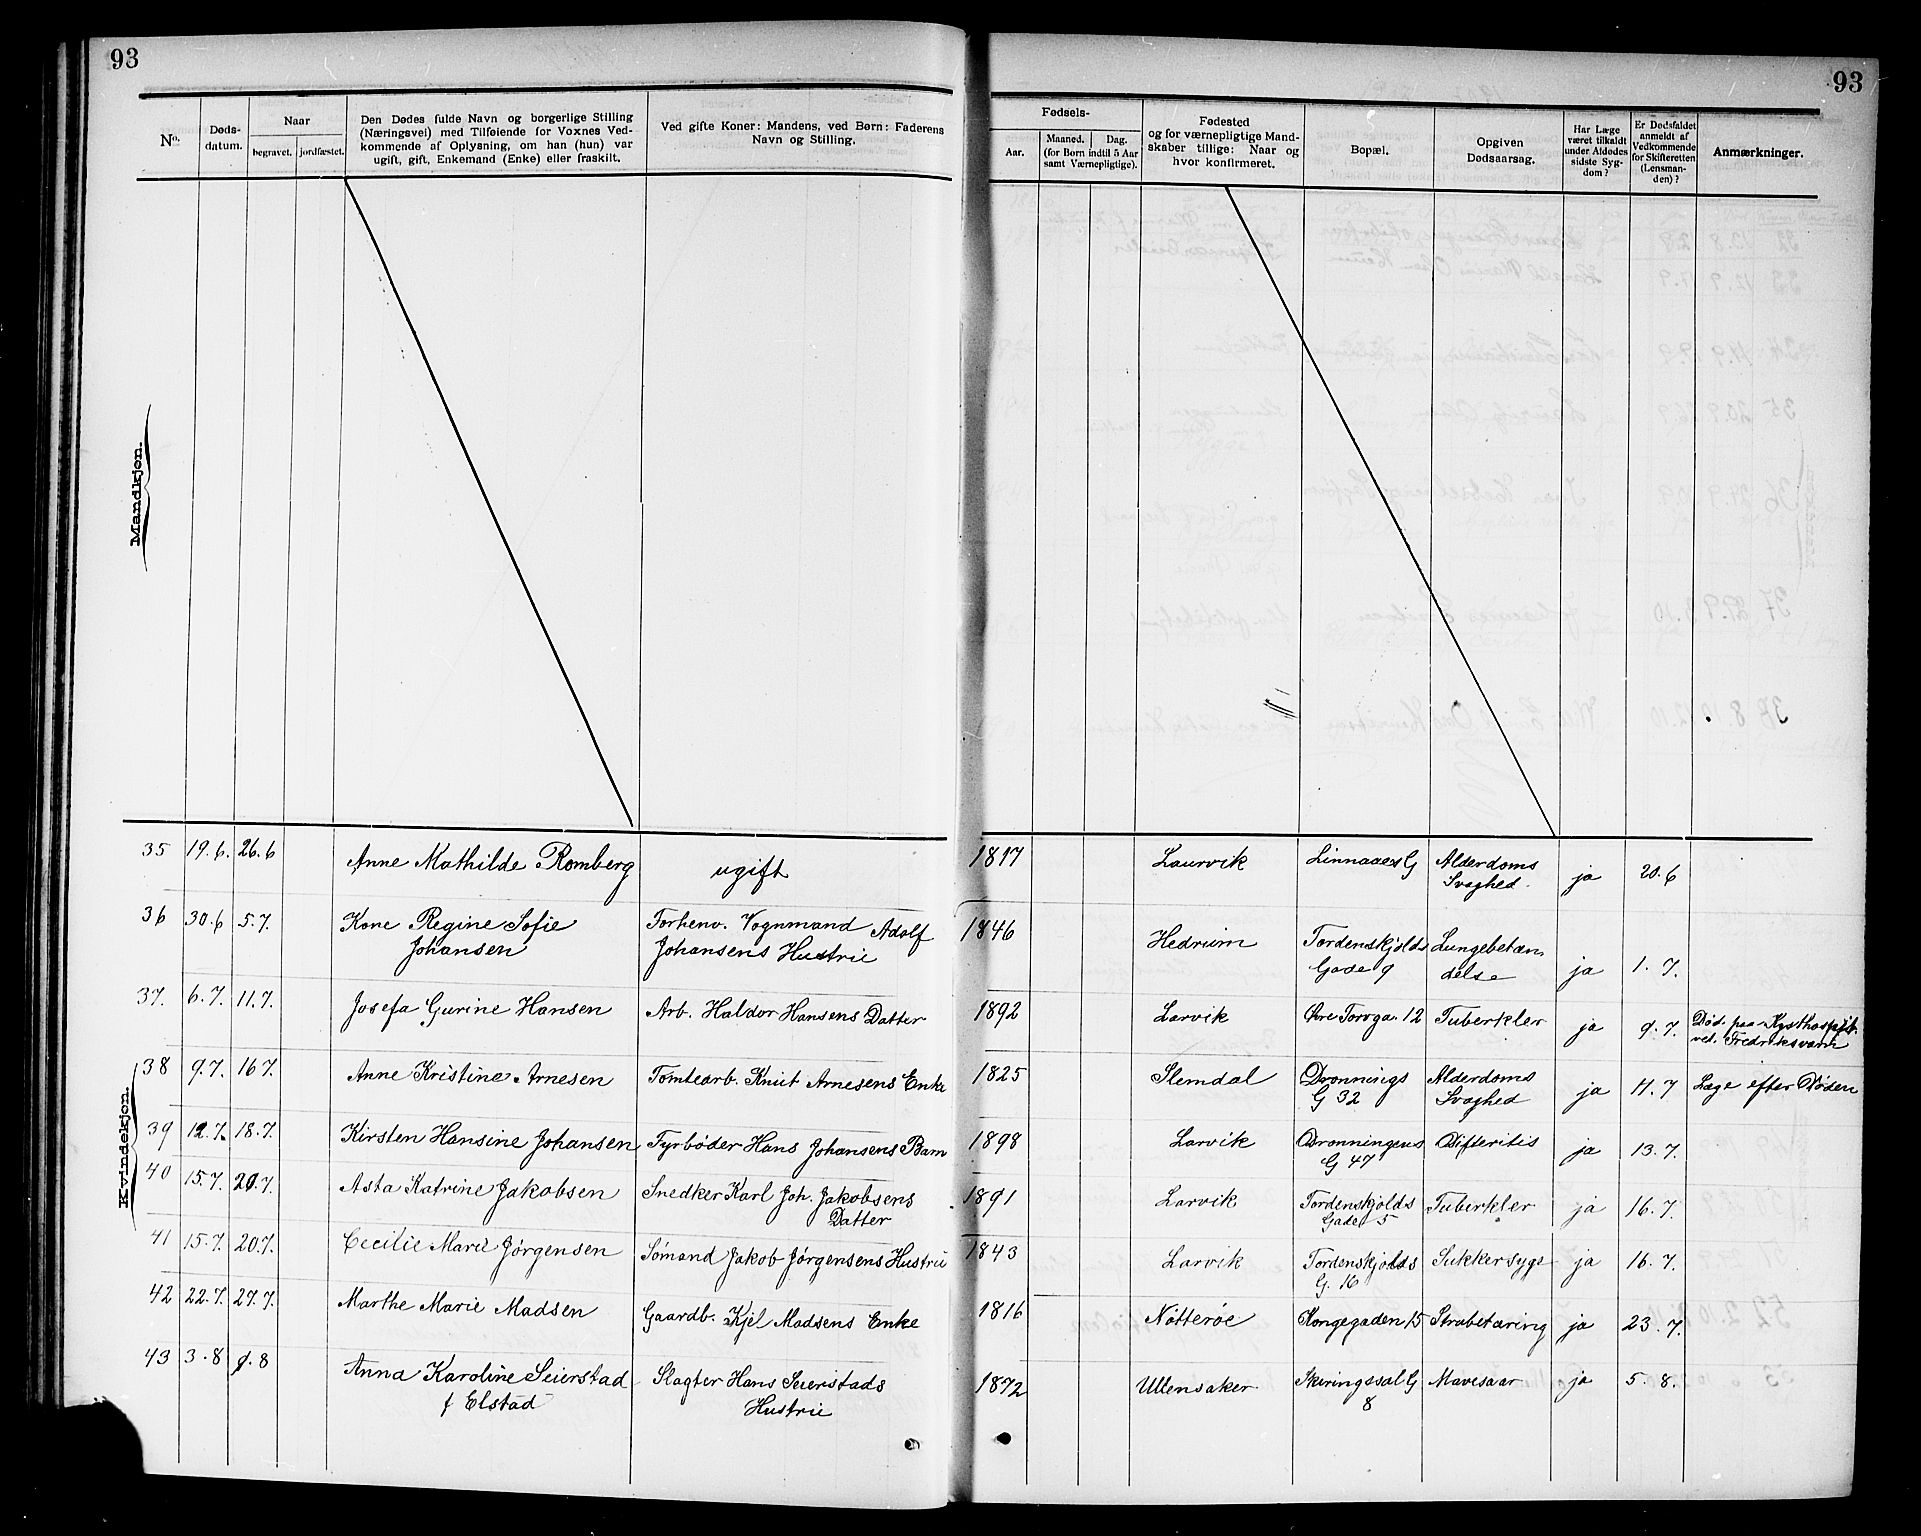 93
93
No.
Døds-
datum.
Naar
begravet. jordfæstet.
Den Dødes fulde Navn og borgerlige Stilling
(Næringsvei) med Tilføiende for Voxnes Ved-
kommende af Oplysning, om han (hun) var
ugift, gift, Enkemand (Enke) eller fraskilt.
Ved gifte Koner: Mandens, ved Børn: Faderens
Navn og Stilling.
Fødsels-
Aar.
Maaned. Dag.
(for Børn indtil 5 Aar
samt Værnepligtige).
Fødested
og for værnepligtige Mand-
skaber tillige: Naar og
hvor konfirmeret.
Bopæl.
Opgiven
Dødsaarsag.
Har Læge
været tilkaldt
under Afdødes
sidste Syg-
dom?
Er Dødsfaldet
anmeldt af
Vedkommende
for Skifteretten
(Lensman-
den)?
Anmærkninger.
Mandkjøn.
Kvindekjøn.
35 19.6. 26.6 Anne Mathilde Romberg ugift 1817 Laurvik Linnaaes G Alderdoms ja 20.6
Svaghed.
36 30.6 5.7. Kone Regine Sofie Forhenv. Vognmand Adolf 1846 Hedrum Tordenskjolds Lungebetæn ja 1.7.
Johansen Johansens Hustru Gade 9 delse
37. 6.7. 11.7. Josefa Gurine Hansen Arb. Haldor Hansens Datter 1892 Larvik Øvre Torvga. 12 Tuberkler ja 9.7. Død paa Kysthospit.
ved. Fredriksværn
38 9.7. 16 7. Anne Kristine Arnesen Tomtearb. Knut Arnesens Enke 1825 Slemdal Dronnings Alderdoms ja 11.7 Læge efter Døden
G 32 Svaghed
39 12.7. 18.7. Kirsten Hansine Johansen Fyrbøder Hans Johansens Barn 1898 Larvik Dronningens Difteritis ja 13.7.
G 47
40 15.7. 20.7. Asta Katrine Jakobsen Snedker Karl Joh. Jakobsens 1891 Larvik Tordenskjolds Tuberkler ja 16.7.
Datter Gade 5
41 15.7. 20.7. Cecilie Marie Jørgensen Sømand Jakob Jørgensens Hustru 1843 Larvik Tordenskjolds Sukkersyge ja 16.7.
G. 16
42 22.7. 27.7. Marthe Marie Madsen Gaardb. Kjel Madsens Enke 1816 Nøtterøe Kongegaden 15 Strubetæring ja 23.7.
43 3.8 9.8 Anna Karoline Seierstad Slagter Hans Seierstads 1872 Ullensaker Skiringssal G Mavesaar ja 5.8.
f Elstad Hustru 8